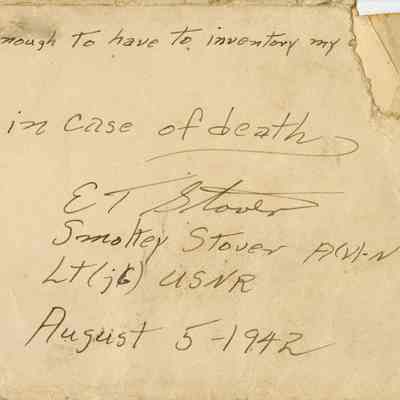 nough to have to inventory my
in case of death
E T Stover
Smokey Stover A(V)-N
Lt(jg) USNR
August 5-1942